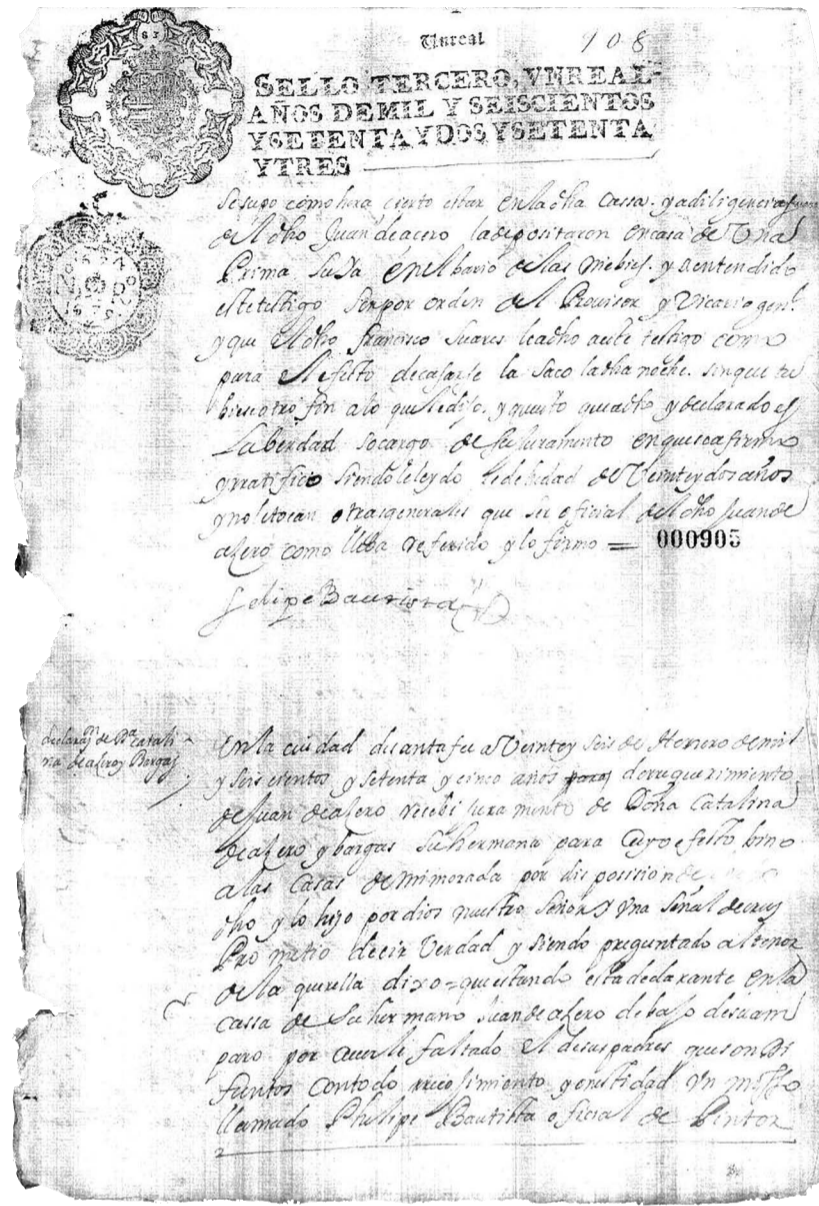 Vnreal
108
SELLO TERCERO, VNREAL
AÑOS DEMIL Y SEISCIENTOS
YSETENTA YDOS YSETENTA
YTRES
Sesupo como hera cierto estar enladha Cassa. yadiligencias
del dho Juan deacero ladepositaron encasa de Una
Prima suya enel bario delas niebes. y a entendido
estetestigo serpor orden del Provisor y Vicario genl.
y que el dho francisco Suares leadho aeste testigo como
para el efecto decasarse la saco ladha noche. sin que tu
biese otro fin alo que ledijo. y questo queadho y declarado es
La berdad socargo de su Juramento enquese afirmo
yrratifico siendole leydo hedehedad de Veinteydos años
ynoletocan otrasgenerales que ser oficial del dho Juande
aZero como lleba referido y lo firmo = 000905
Felipe Bautista
declaraon de Da catali
na deaZero y Bargas
En la ciudad de santa fee a Veinte y seis de Henero demil
y seiscientos y setenta y cinco años derrequerimiento
de Juan deaZero recebi Juramento de Doña Catalina
deaZero y bargas suhermana para cuyo efecto bino
alas Casas demimorada por disposicion de
dho y lo hizo pordios nuestro señor y Vna señal decruz
Prometio decir Verdad y siendo preguntado altenor
dela querella dixo = questando estadeclarante en la
cassa de su hermano Juan deaZero debajo desuam
paro por averle faltado el desuspadres queson di
funtos contodo rrecojimiento y onestidad Vn mosso
llamado Phelipe Bautista oficial de Pintor